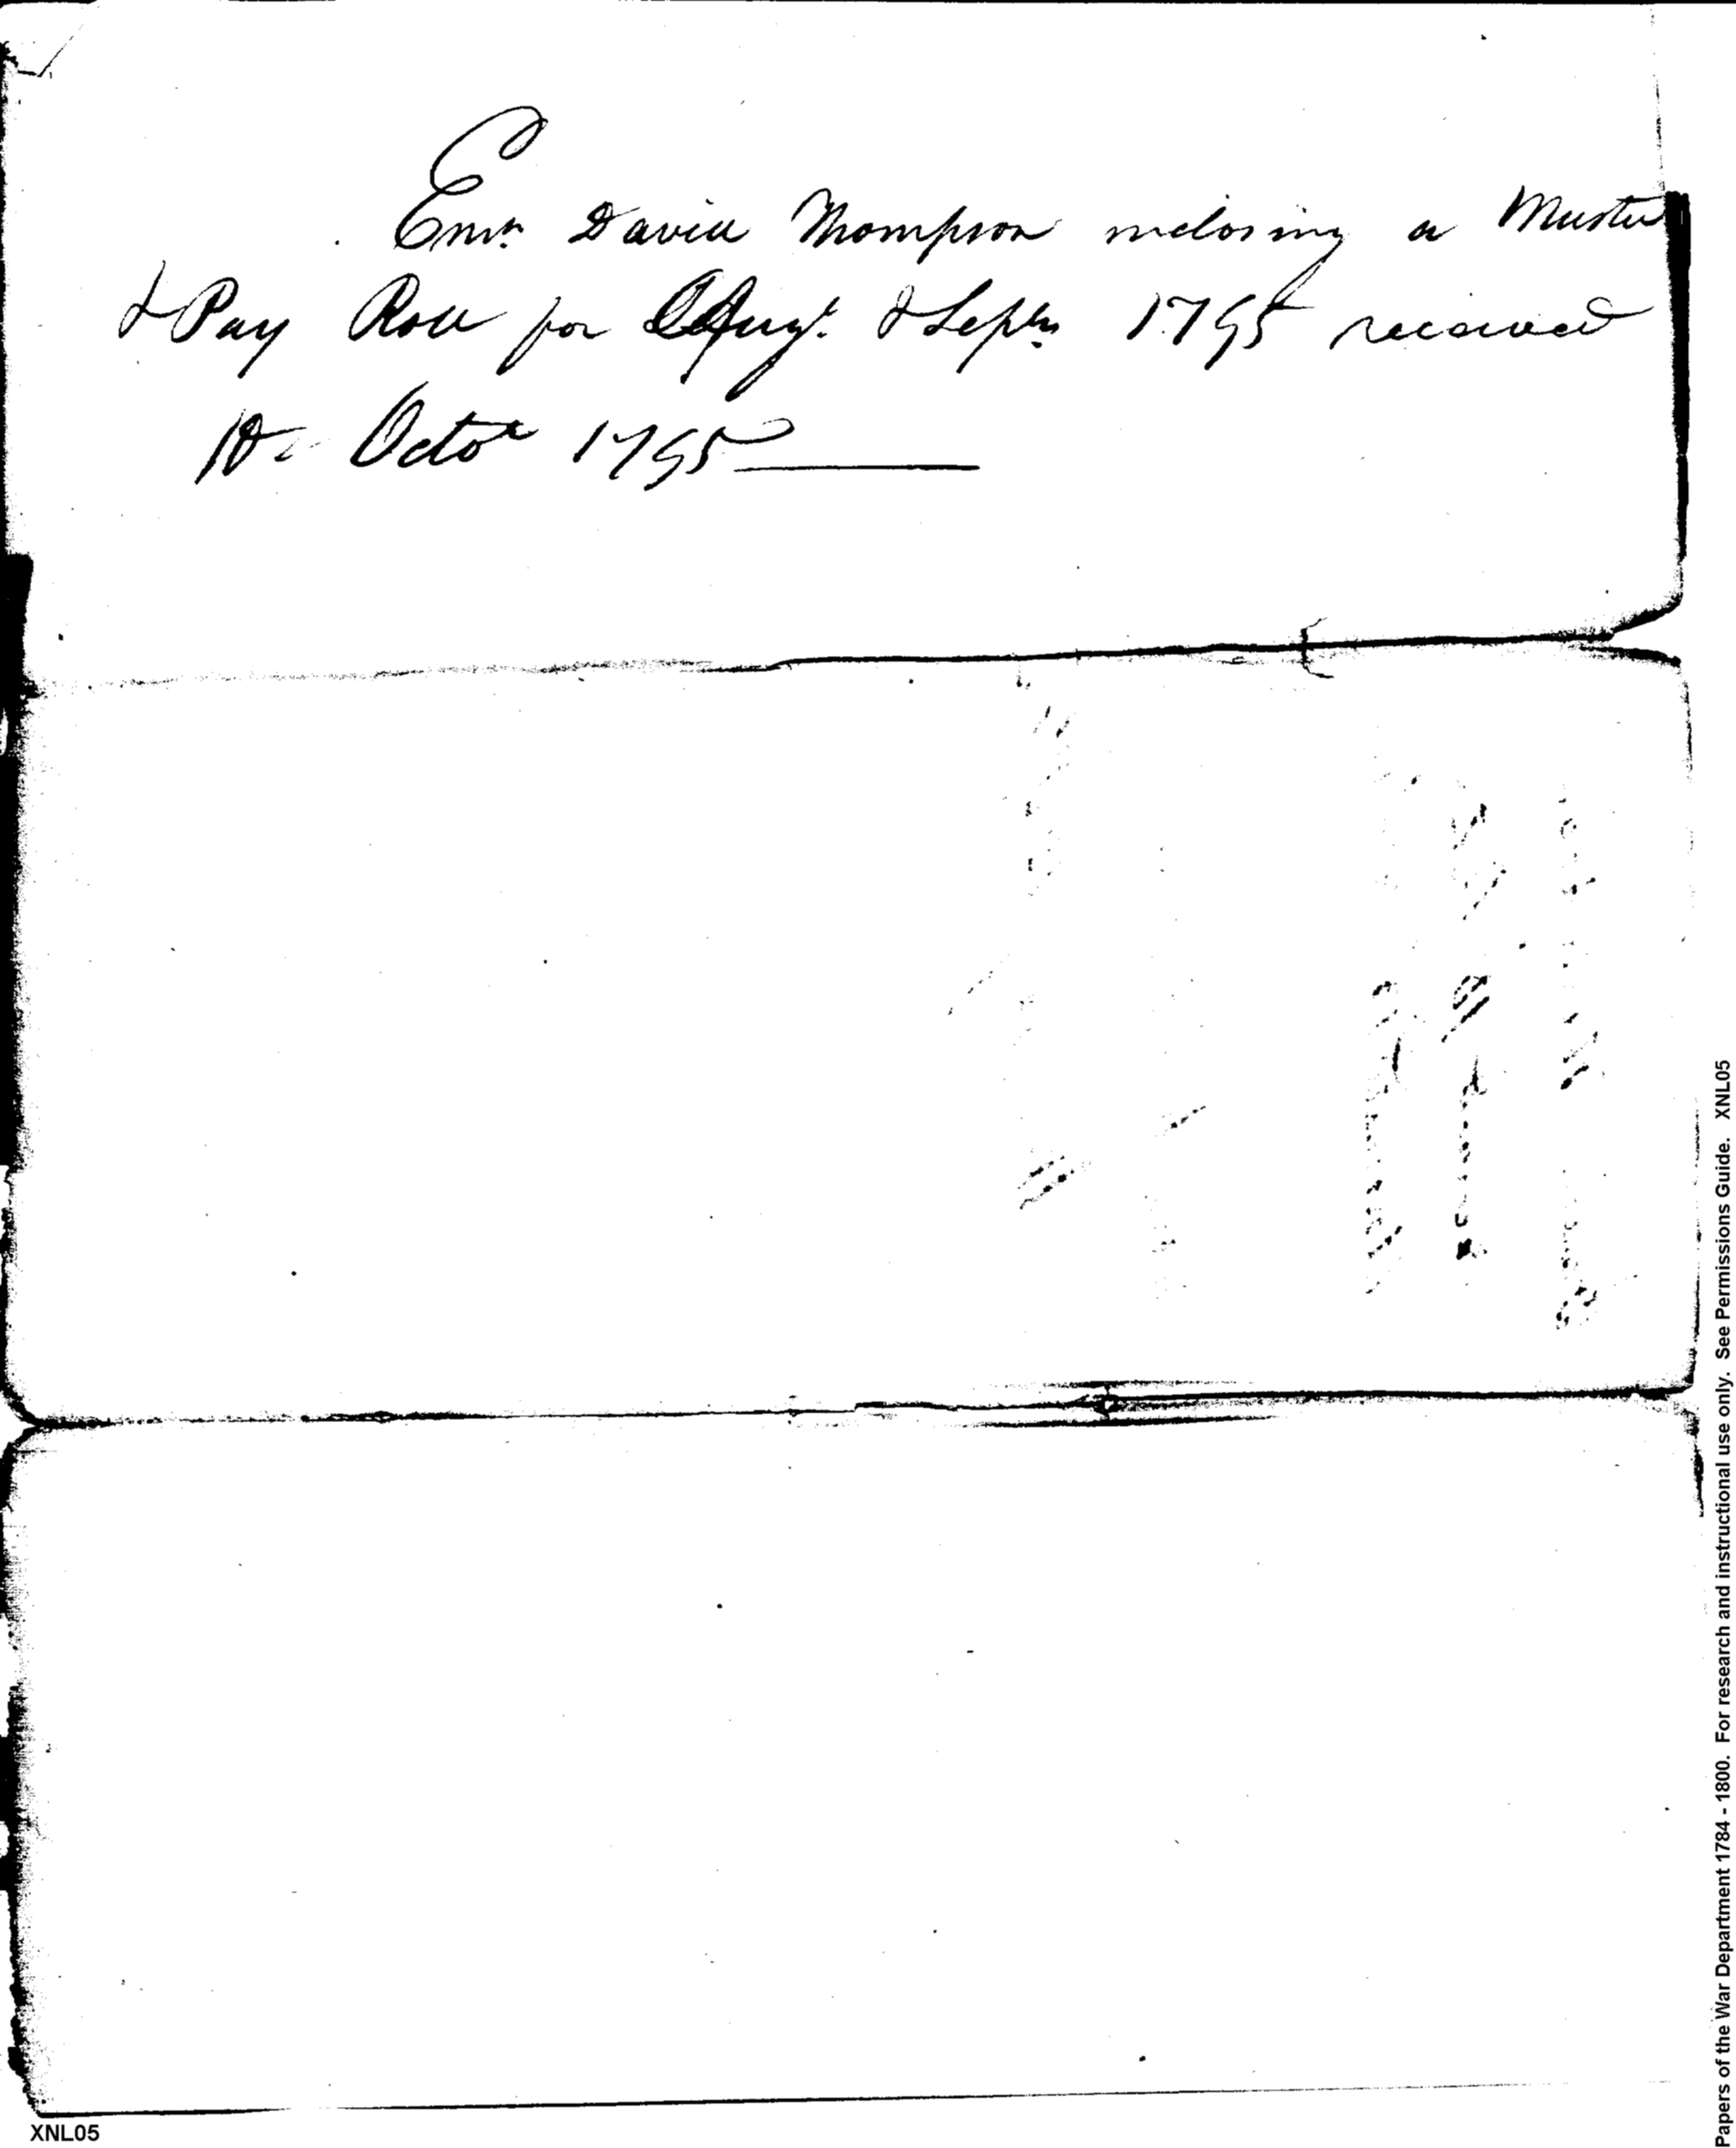 Ensn. David Thompson inclosing a Muster
& Pay Roll for Augt. & Septr. 1795 received
Octor 1795
XNL05
Papers of the War Department 1784 - 1800. For research and instructional use only. See Permissions Guide. XNL05